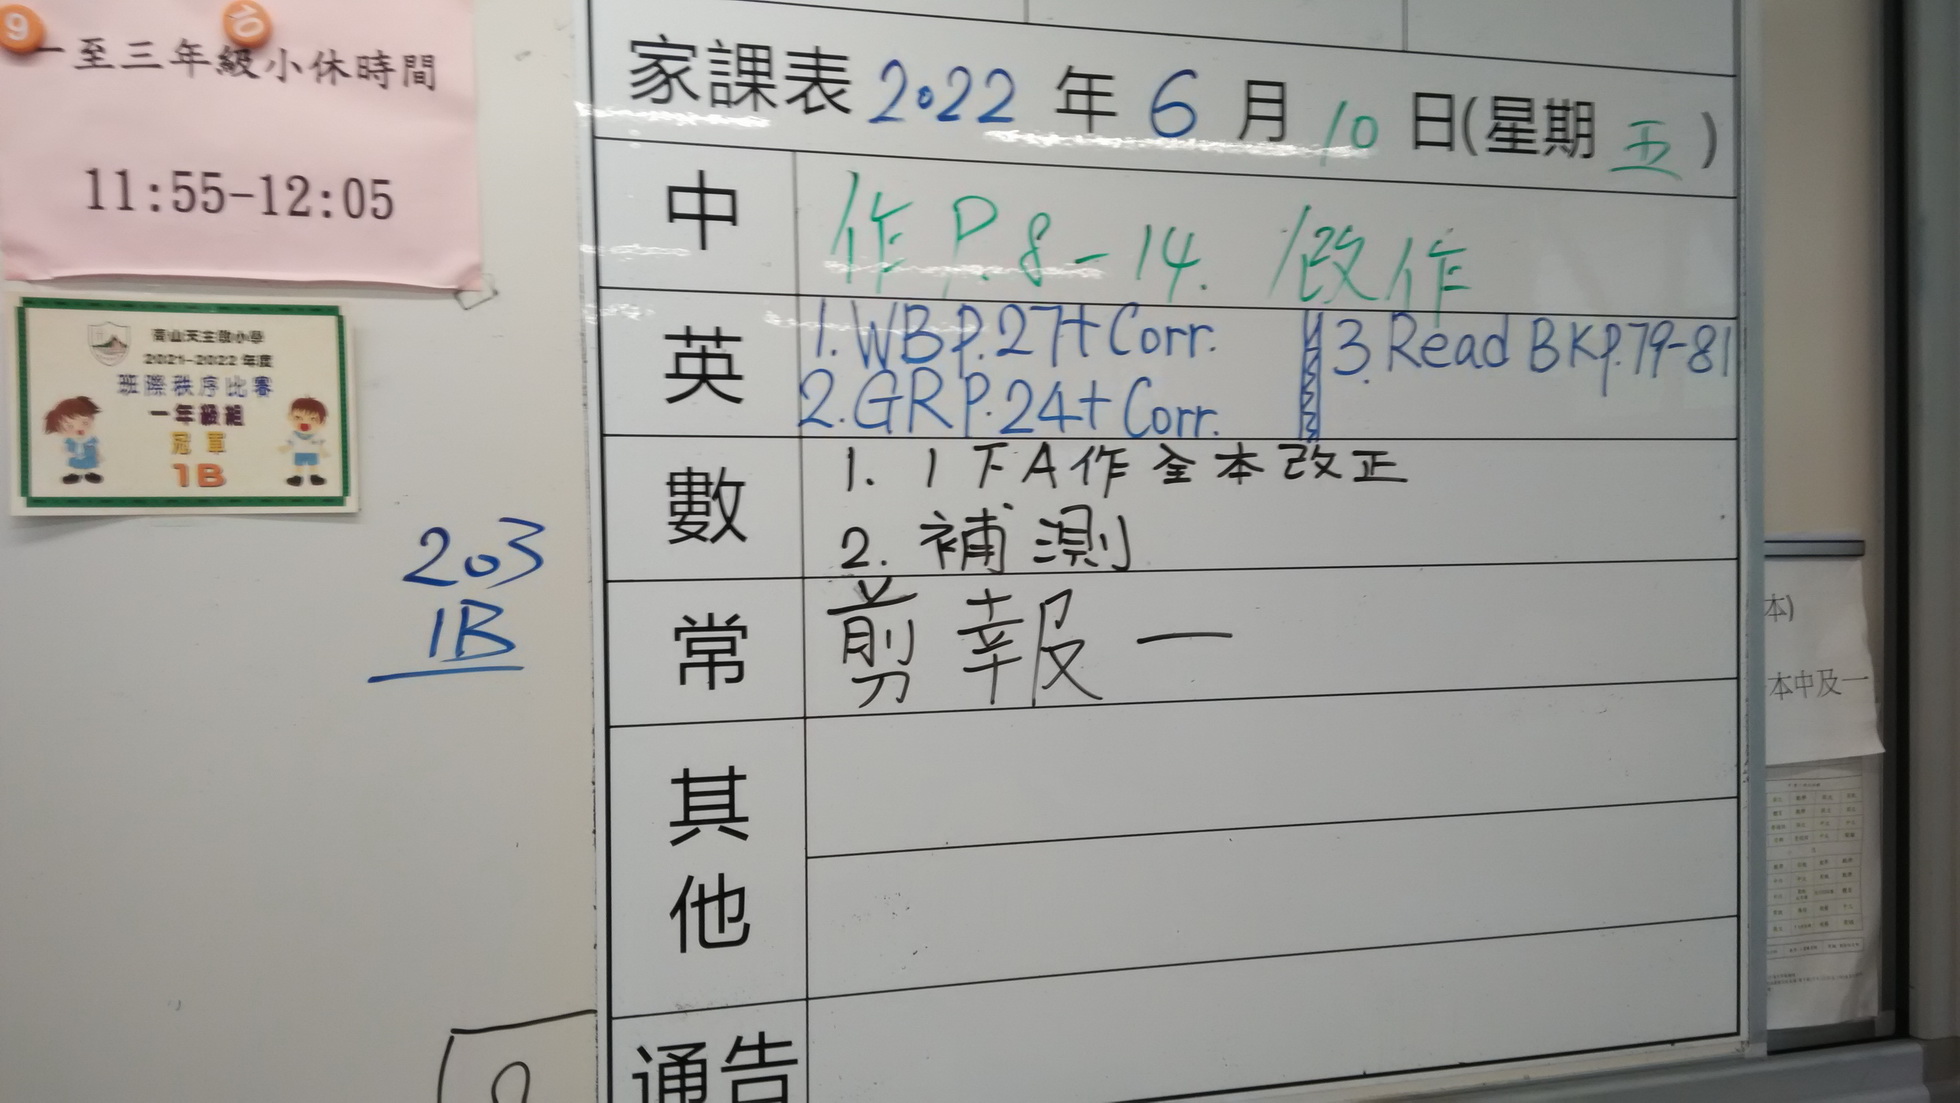 9
10
一至三年級小休時間
11:55-12:05
青山天主教小學
2021-2022 年度
班際秩序比賽
一年級組
冠軍
1B
203
1B
家課表 2022 年 6 月 10 日(星期 五 )
中
作 P.8-14. /改作
英
1. WB p.27+ Corr.
3. Read BK p.79-81
2. GR P.24+ Corr.
數
1. 1下A作全本改正
2. 補測
常
剪報一
其他
通告
本)
本中及一